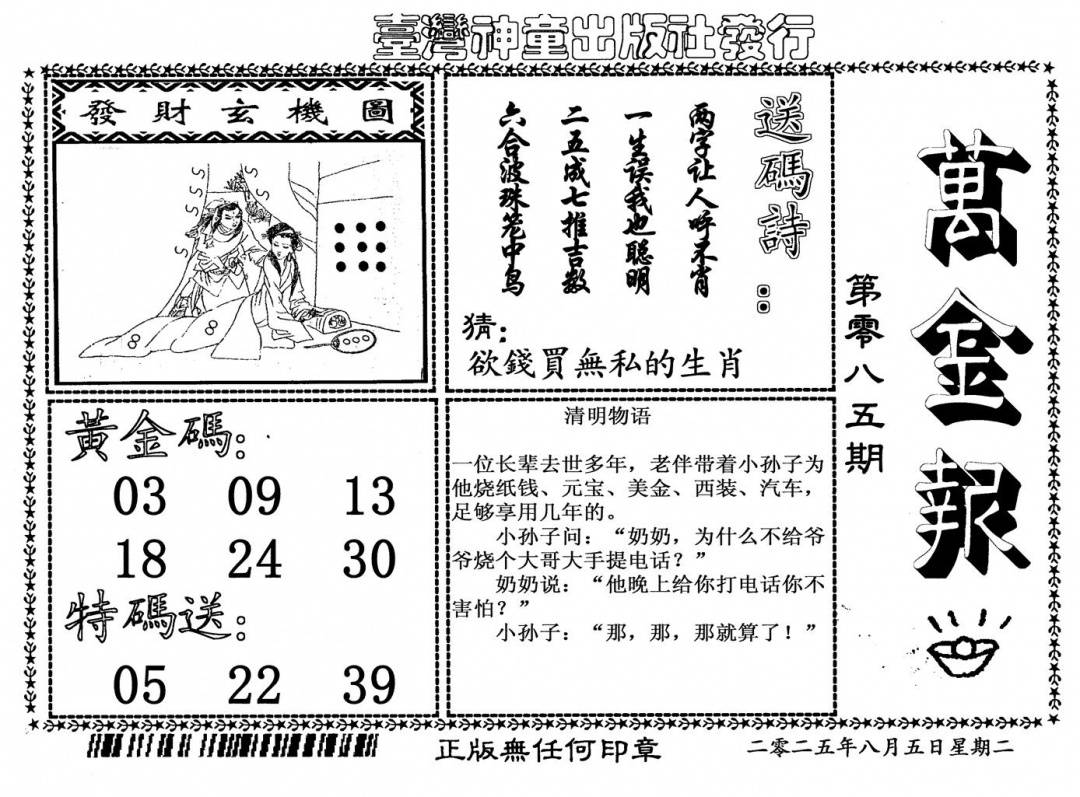 臺灣神童出版社發行
發財玄機圖
送碼詩：
两字让人呼不肖
一生误我也聪明
二五成七推吉数
六合波珠笼中鸟
猜：
欲錢買無私的生肖
萬金報
第零八五期
黃金碼：
03 09 13
18 24 30
特碼送：
05 22 39
清明物语
一位长辈去世多年，老伴带着小孙子为
他烧纸钱、元宝、美金、西装、汽车，
足够享用几年的。
小孙子问：“奶奶，为什么不给爷
爷烧个大哥大手提电话？”
奶奶说：“他晚上给你打电话你不
害怕？”
小孙子：“那，那，那就算了！”
正版無任何印章
二零二五年八月五日星期二